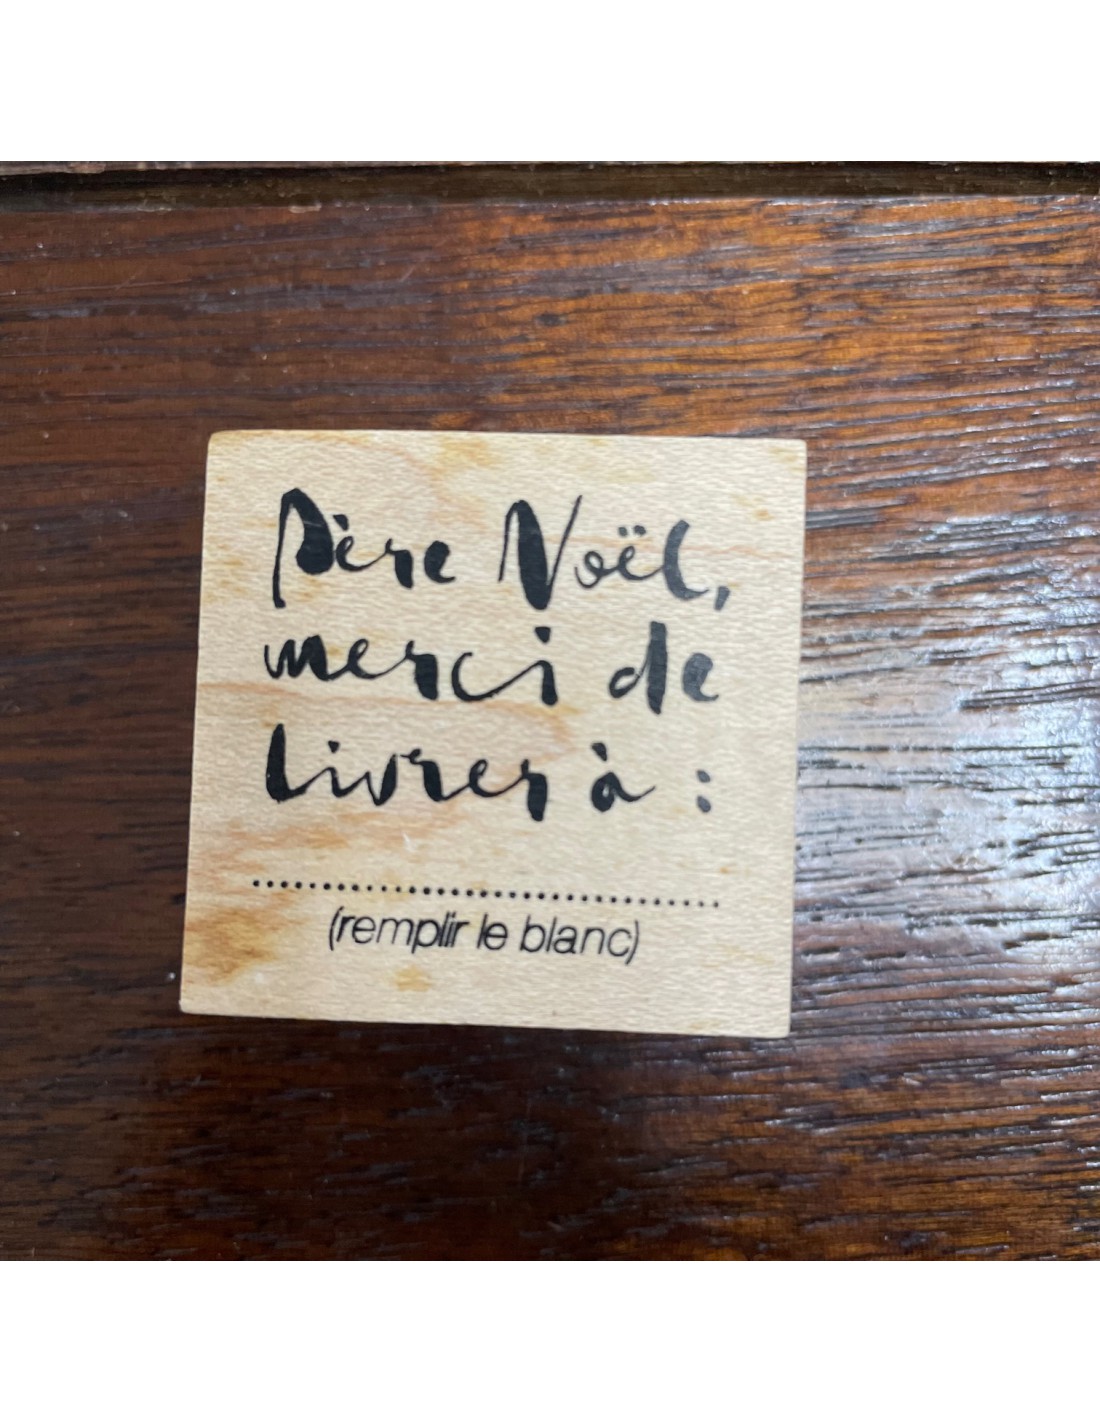 Père Noël,
merci de
livrer à :
........................................
(remplir le blanc)